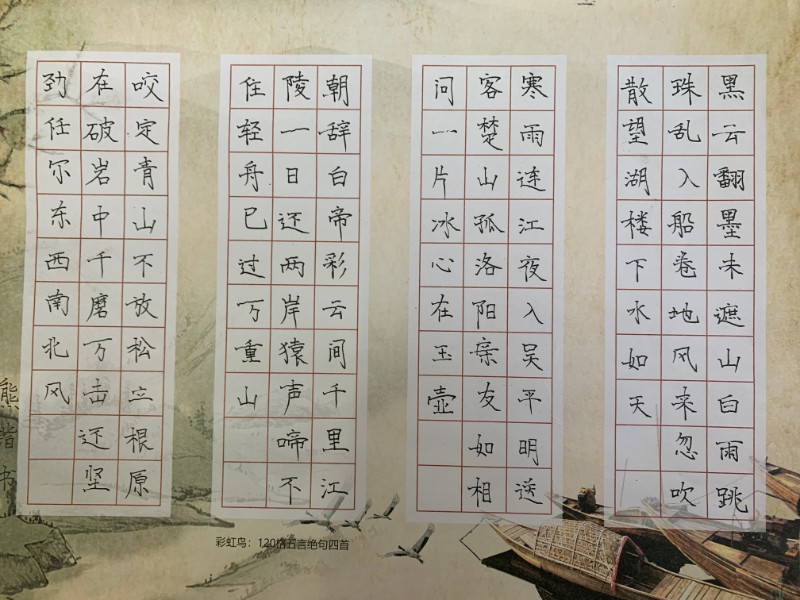 黑云翻墨未遮山白雨跳
珠乱入船卷地风来忽吹
散望湖楼下水如天
寒雨连江夜入吴平明送
客楚山孤洛阳亲友如相
问一片冰心在玉壶
朝辞白帝彩云间千里江
陵一日还两岸猿声啼不
住轻舟已过万重山
咬定青山不放松立根原
在破岩中千磨万击还坚
劲任尔东西南北风
彩虹鸟：120格五言绝句四首